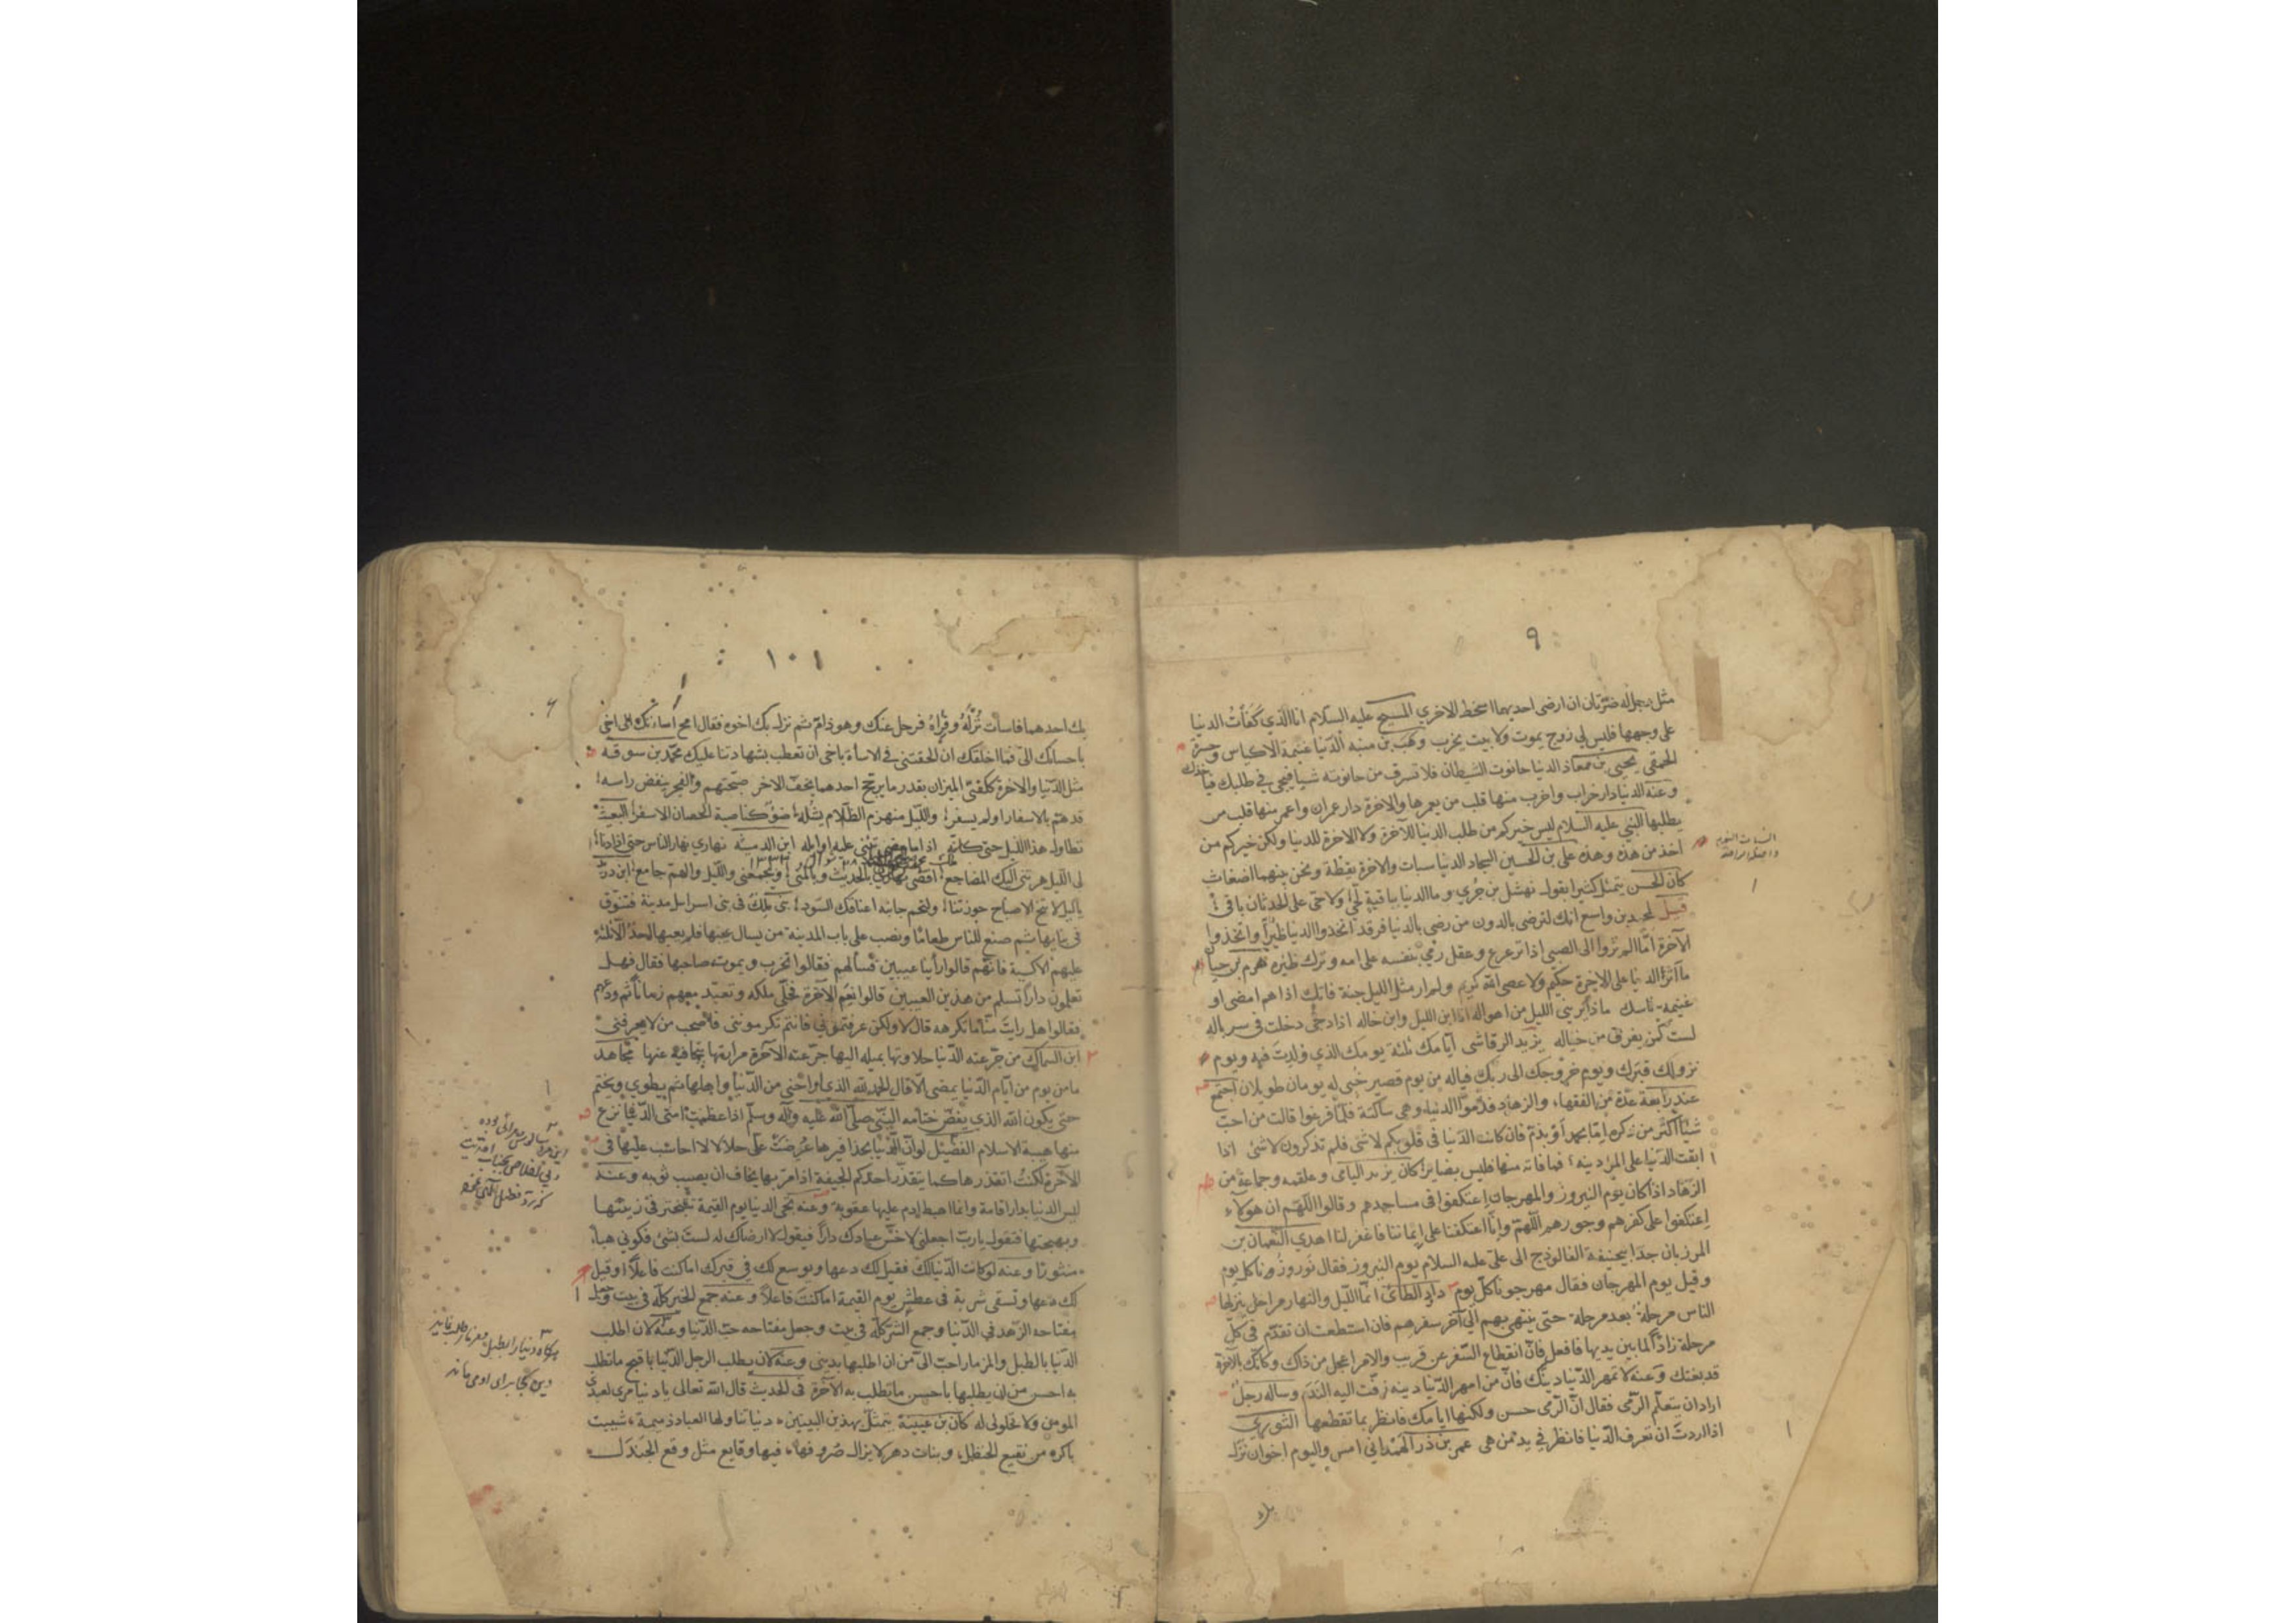 ٩
مثل رجل له ضرتان ان ارضى احديهما اسخط الاخري المسيح عليه السلام انا الذي كفأت الدنيا
على وجهها فليس لي زوج يموت ولا بيت يخرب وهب بن منبه الدنيا غنيمة الاكياس وحسرة
الحمقى يحيى بن معاذ الدنيا حانوت الشيطان فلا تسرق من حانوته شيا فيجي في طلبك فياخذك
وعنه الدنيا دار خراب واخرب منها قلب من يعمرها والاخرة دار عمران واعمر منها قلب من
يطلبها النبي عليه السلام ليس خيركم من طلب الدنيا للآخرة ولا الاخرة للدنيا ولكن خيركم من
اخذ من هذه وهذه على بن الحسين السجاد الدنيا سبات والاخرة يقظة ونحن بينهما اضغاث
كان الحسن يتمثل كثيرا بقول نهشل بن جري وما الدنيا بباقية لحي ولا حي على الحدثان باقي
قيل لمحمد بن واسع انك لترضى بالدون من رضى بالدنيا فرقد اتخذوا الدنيا ظئرا واتخذوا
الآخرة اما الم تروا الى الصبي اذا ترعرع وعقل رمى بنفسه على امه وترك ظئره هرم بن حيان
ما آثر الدنيا على الاخرة حكيم ولا عصى الله كريم ولم ار مثل الليل جنة فاتك اذا هم امضى او
غنيمة ناسك ماذا يريني الليل من اهواله انا ابن الليل وابن خاله اذا دجى دخلت في سرباله
لست كمن يفرق من خياله يزيد الرقاشى ايامك ثلثة يومك الذي ولدت فيه ويوم
نزولك قبرك ويوم خروجك الى ربك فياله من يوم قصير خبي له يومان طويلان اجتمع
عند رابعة عدة من الفقهاء والزهاد فذموا الدنيا وهى ساكتة فلما فرغوا قالت من احب
شيئا اكثر من ذكره اما بحمد او بذم فان كانت الدنيا في قلوبكم لاشئ فلم تذكرون لاشئ اذا
ابقت الدنيا على المرء دينه فما فاته منها فليس بضاير كان يزيد اليامى وعلقمه وجماعة من
الزهاد اذا كان يوم النيروز والمهرجان اعتكفوا في مساجدهم وقالوا اللهم ان هولاء
اعتكفوا على كفرهم وجورهم اللهم وانا اعتكفنا على ايماننا فاغفر لنا اهدي النعمان بن
المرزبان جد ابيحنيفة الفالوذج الى على عليه السلام يوم النيروز فقال نوروزونا كل يوم
وقيل يوم المهرجان فقال مهرجونا كل يوم داود الطائى انما الليل والنهار مراحل ينزلها
الناس مرحلة بعد مرحلة حتى ينتهى بهم الى آخر سفرهم فان استطعت ان تقدم في كل
مرحلة زادا لما بين يديها فافعل فان انقطاع السفر عن قريب والامر اعجل من ذاك وكانك بالآخرة
قد بغتتك وعنه لا تمهر الدنيا دينك فان من امهر الدنيا دينه زفت اليه الندم وساله رجل
اراد ان يتعلم الرمى فقال ان الرمى حسن ولكنها ايامك فانظر بما تقطعها الثوري
اذا اردت ان تعرف الدنيا فانظر في يد من هى عمر بن ذر الهمداني امس واليوم اخوان نزل
السبات النوم
١٠١
بك احدهما فاسات نزله وقراه فرحل عنك وهو ذام ثم نزل بك اخوه فقال امح اساءتك الى اخي
باحسانك الى فما اخلقك ان الحقتني في الاساءة باخى ان تعطب بشهادتنا عليك محمد بن سوقه
مثل الدنيا والاخرة ككفتي الميزان بقدر ما يرجح احدهما يخف الاخر صبحتهم والفجر ينغض راسه
قد هم بالاسفار او لم يسفر والليل منهزم الظلام يشله ضوء كناصية الحصان الاسقر البعيث
تطاول هذا الليل حتى كانه اذا ما مضى تثنى عليه اوايله ابن الدمينة نهاري نهار الناس حتى اذا دنا
لى الليل هزتنى اليك المضاجع اقضى نهاري بالحديث وبالمنى ويجمعني والليل والهم جامع ابن دريد
بنى ملك في بنى اسراييل مدينة فتنوق
في بنايها ثم صنع للناس طعاما ونصب على باب المدينة من يسال عنها فلم يعبها احد الا ثلثة
عليهم الاكسية فانهم قالوا راينا عيبين فسالهم فقالوا تخرب ويموت صاحبها فقال فهل
تعلمون دارا تسلم من هذين العيبين قالوا نعم الآخرة فخلى ملكه وتعبد معهم زمانا ثم ودعهم
فقالوا هل رايت منا ما تكرهه قال لا ولكن عرفتموني فانتم تكرمونني فلاصحب من لا يعرفني
ابن السماك من جرعته الدنيا حلاوتها بميله اليها جرعته الآخرة مرارتها بتجافيه عنها مجاهد
ما من يوم من ايام الدنيا يمضى الا قال الحمد لله الذي اراحني من الدنيا واهلها ثم يطوي ويختم
حتى يكون الله الذي يفض ختامه النبي صلى الله عليه وآله وسلم اذا عظمت امتى الدنيا نزع
منها هيبة الاسلام الفضيل لو ان الدنيا بحذافيرها عرضت على حلالا لا احاسب عليها في
الآخرة لكنت اتقذرها كما يتقذر احدكم الجيفة اذا مر بها يخاف ان يصيب ثوبه وعنه
ليس الدنيا بدار اقامة وانما اهبط ادم عليها عقوبة وعنه تجئ الدنيا يوم القيمة تتبختر في زينتها
وبهجتها فتقول يارب اجعلنى لاخس عبادك دارا فيقول لا ارضاك له لست بشئ فكوني هباء
منثورا وعنه لو كانت الدنيا لك فقيل لك دعها ويوسع لك في قبرك اما كنت فاعلا او قيل
لك دعها وتسقى شربة في عطش يوم القيمة اما كنت فاعلا وعنه جمع الخير كله في بيت وجعل
مفتاحه الزهد في الدنيا وجمع الشر كله في بيت وجعل مفتاحه حب الدنيا وعنه لان اطلب
الدنيا بالطبل والمزمار احب الى من ان اطلبها بديني وعنه لان يطلب الرجل الدنيا باقبح ما تطلب
به احسن من ان يطلبها باحسن ما تطلب به الآخرة في الحديث قال الله تعالى يا دنيا مري لعبدي
المومن ولا تحلولى له كان بن عيينة يتمثل بهذين البيتين دنيا تناولها العباد ذميمة شيبت
باكره من نقيع الحنظل وبنات دهر لا يزال صروفها فيها وقايع مثل وقع الجندل